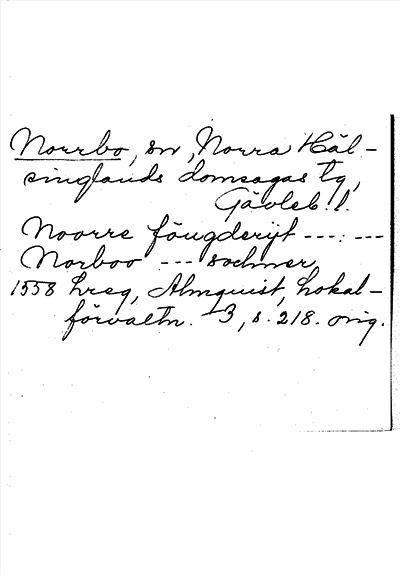 Norrbo, sn, Norra Häl-
singlands domsagas tg,
Gävleb. l.
Noorre föugderijt ---:---
Norboo --- sochner,
1558 hreg, Almquist, Lokal-
förvaltn. 3, s. 218. orig.